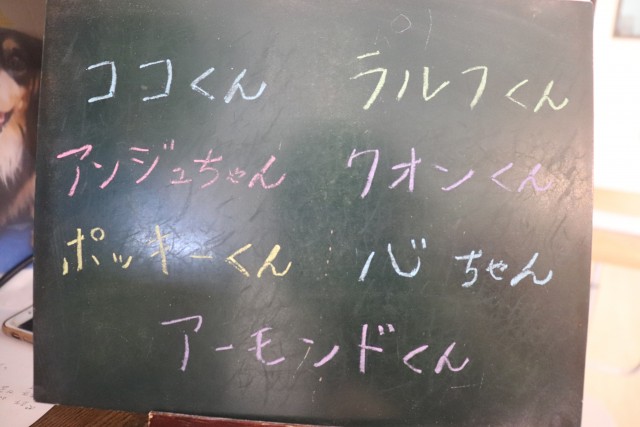 ココくん ラルフくん
アンジュちゃん クオンくん
ポッキーくん 心ちゃん
アーモンドくん